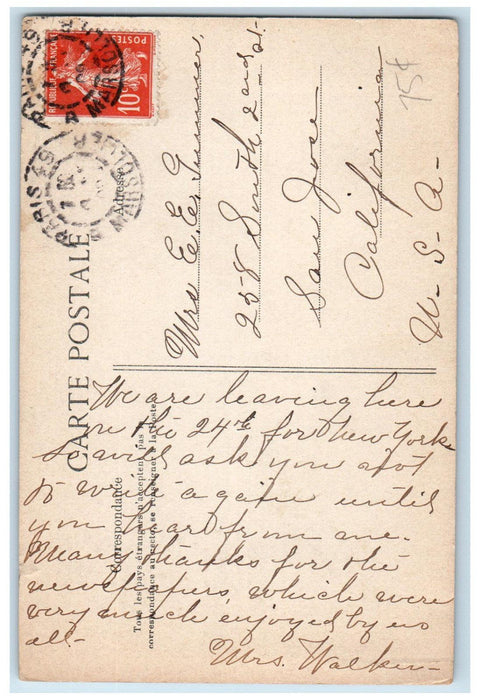 CARTE POSTALE
Correspondance
Tous les pays étrangers n'acceptent pas la
correspondance au recto, se renseigner à la Poste
Adresse
RÉPUBLIQUE FRANÇAISE
POSTES
10
PARIS
75¢
Mrs E. E. Gunner.
258 South 2nd St-
San Jose
California
U-S-A-
We are leaving here
on the 24th for New York
so will ask you not
to write again until
you hear from me.
Many thanks for the
newspapers, which were
very much enjoyed by us
all-
Mrs. Walker-